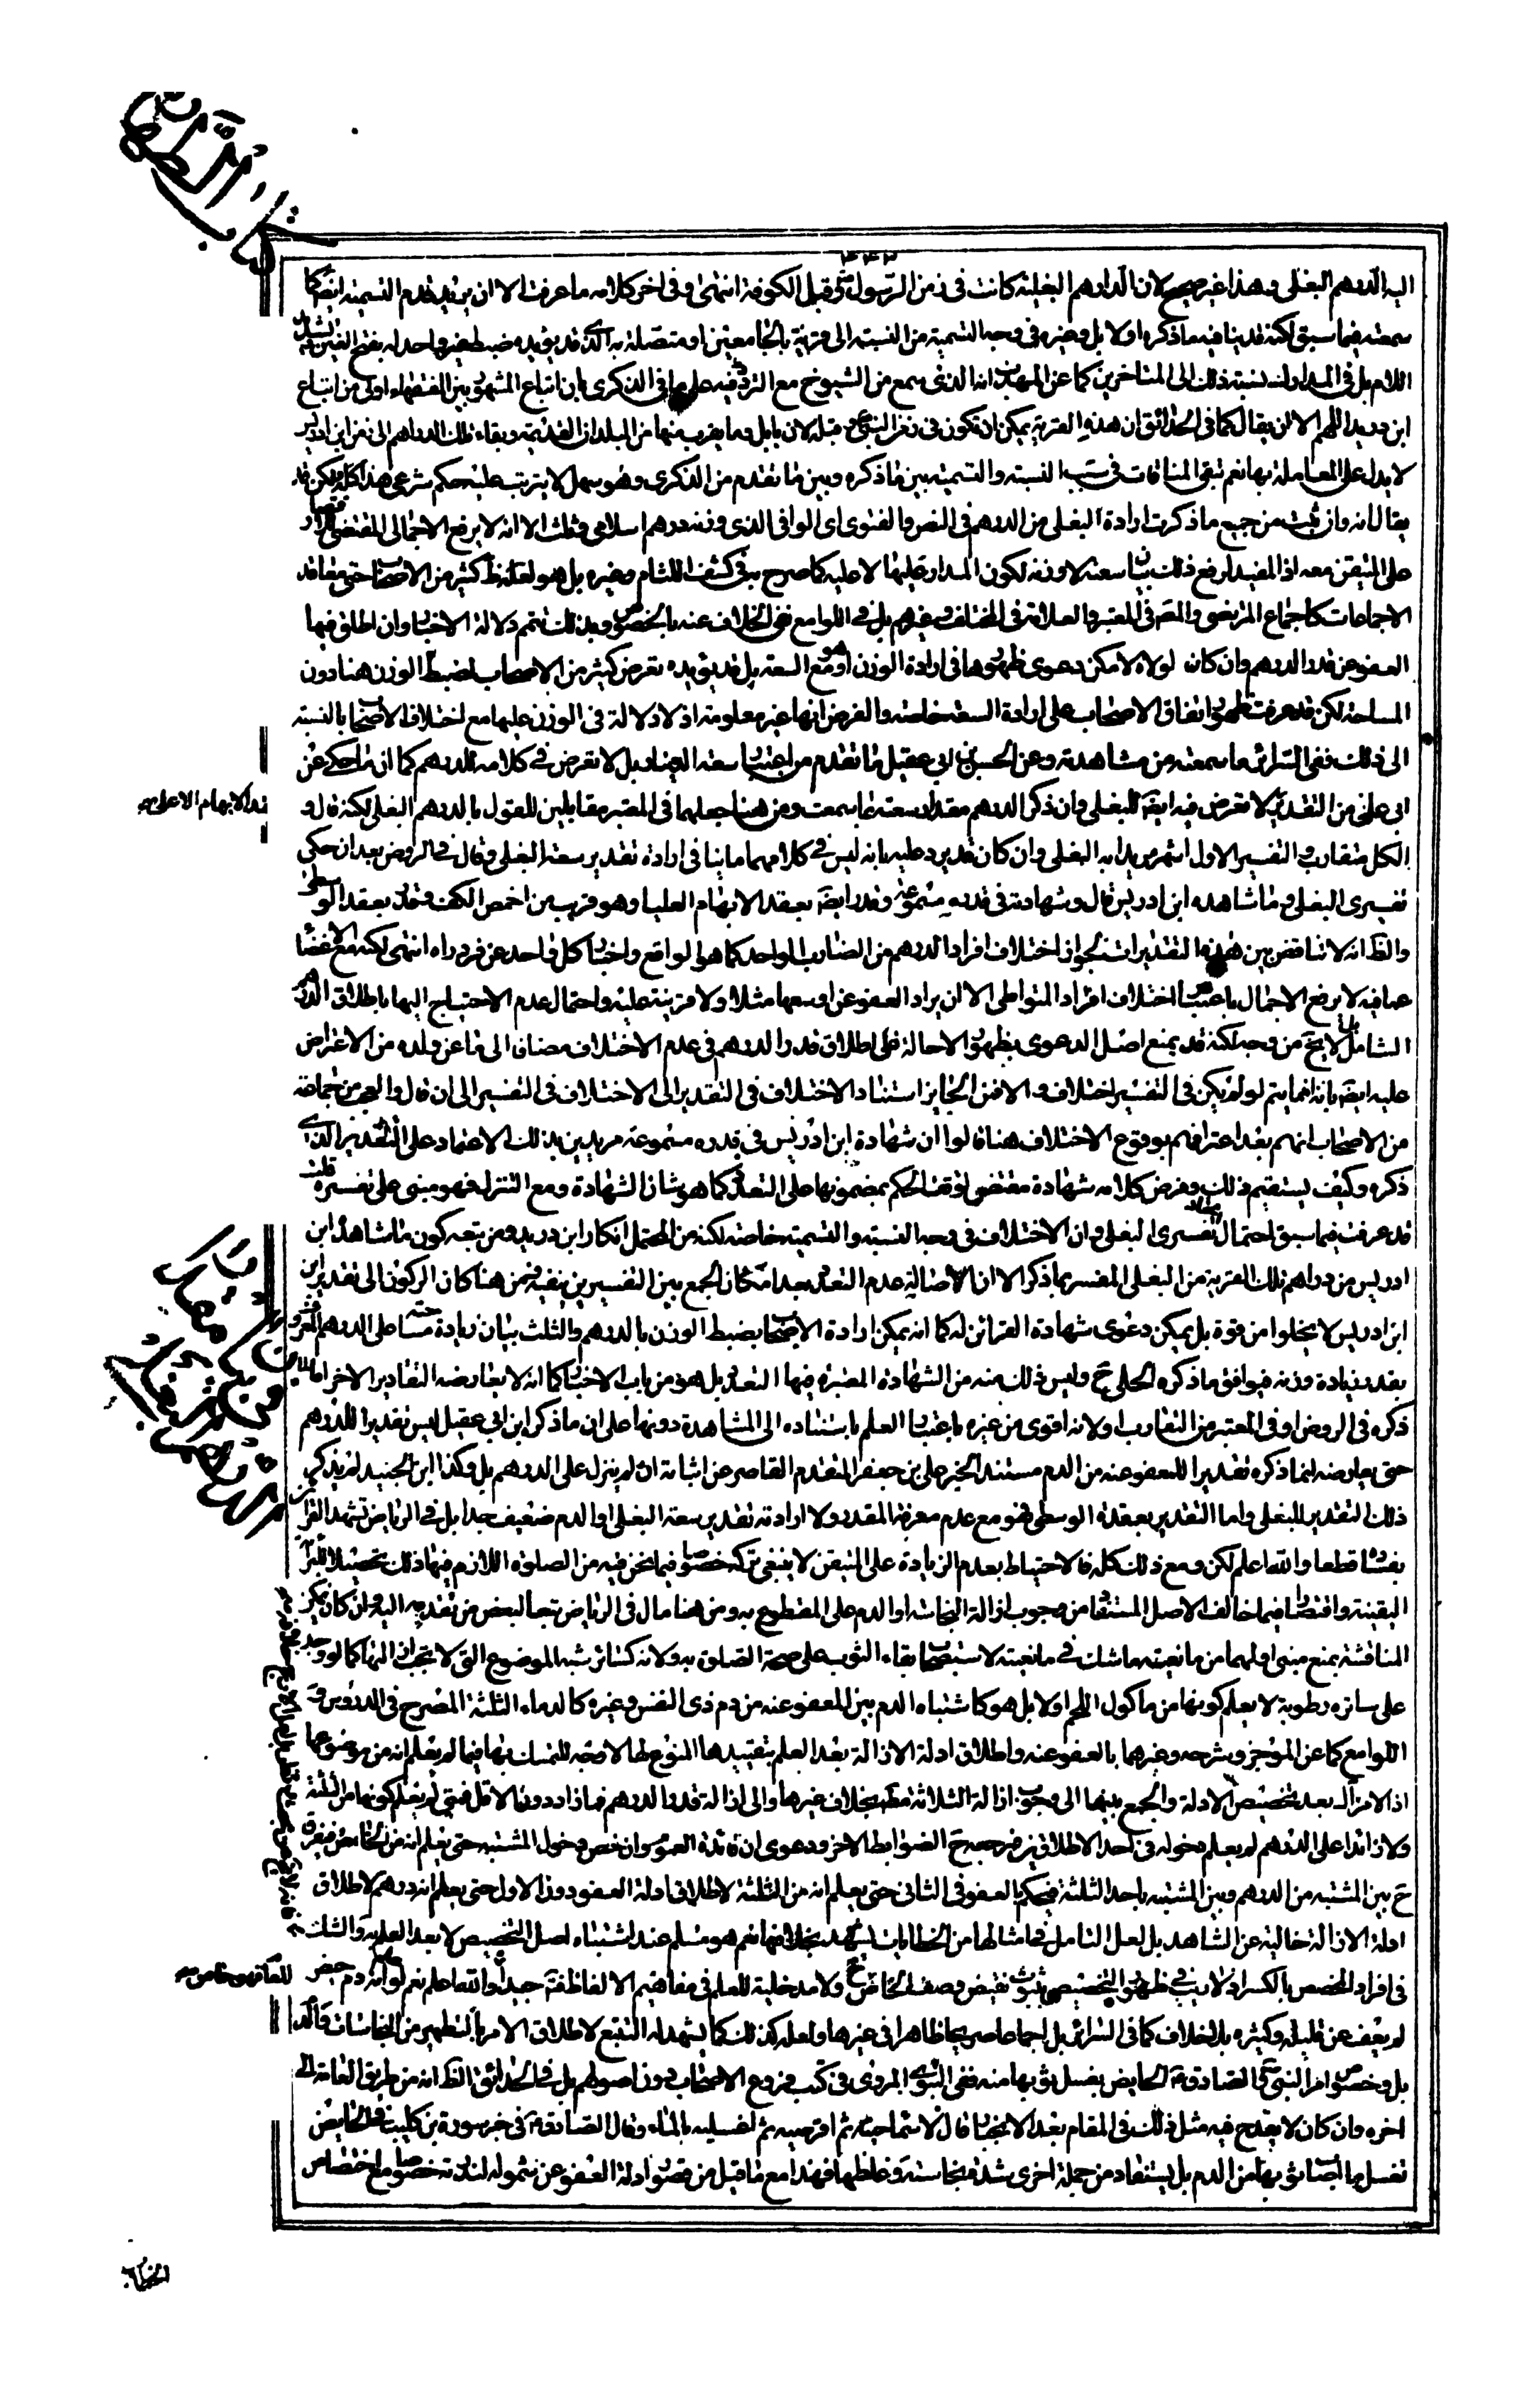 كتاب الطهارة
٤٤٣
اليه الدرهم البغلى وهذا غير صحيح لان الدراهم البغلية كانت في زمن الرسول ص وقبل الكوفة انتهى وفي اخر كلامه ما عرفت الا ان يريد قدم التسمية ايضا كما
سمعته فيما سبق لكنه قد ينافيه ما ذكره اولا بل وغيره في وجه التسمية من النسبة الى قرية بالجامعين او متصلة به الذى قد يؤيده ضبط غير واحد له بفتح الغين وتشديد
اللام بل في المدارك نسبة ذلك الى المتاخرين كما عن المهذب انه الذى سمع من الشيوخ مع الترد فيه على ما في الذكرى بان اتباع المشهور بين الفقهاء اولى من اتباع
ابن دريد اللهم الا ان يقال كما في الحدائق ان هذه القرية يمكن ان تكون في زمن النبي ص وقبله لان بابل وما يقرب منها من البلدان القديمة وبقاء تلك الدراهم الى زمن ابن ادريس
لا يدل على المعاملة بها نعم تبقى المنافات في سبب النسبة والتسمية بين ما ذكره وبين ما تقدم من الذكرى وهو سهل لا يترتب عليه حكم شرعى هذا كله ولكن قد
يقال انه وان ثبت من جميع ما ذكرت ارادة البغلى من الدرهم في النص والفتوى اى الوافى الذى وزنه درهم اسلامى وثلث الا انه لا يرفع الاجمال المقتضى للاقتصار
على المتيقن معه اذ المفيد لرفع ذلك بيان سعته لا وزنه لكون المدار عليها لا عليه كما صرح به في كشف اللثام وغيره بل هو لعله ظ كثير من الاصحاب حتى معاقد
الاجماعات كاجماع المرتضى والمص في المعتبر والعلامة في المختلف وغيرهم بل في اللوامع نفى الخلاف عنه بالخصوص وبذلك تتم دلالة الاخبار وان اطلق فيها
العفو عن قدر الدرهم وان كان لولاه لامكن دعوى ظهورها في ارادة الوزن او هو مع السعة بل قد يؤيده تعرض كثير من الاصحاب لضبط الوزن هنا دون
المساحة لكن قد عرفت ظهور اتفاق الاصحاب على ارادة السعة خاصة والفرض انها غير معلومة اذ لا دلالة في الوزن عليها مع اختلاف الاصحاب بالنسبة
الى ذلك ففى السرائر ما سمعته من مشاهدته وعن الحسن بن ابى عقيل ما تقدم من اعتبار سعة الدينار بل لا تعرض في كلامه للدرهم كما ان ما حكى عن
ابى على من التقدير لا تعرض فيه ايضا للبغلى وان ذكر الدرهم مقدرا سعته بما سمعت ومن هنا جعلهما في المعتبر مقابلين للقول بالدرهم البغلى لكنه قال و
الكل متقارب والتفسير الاول اشهر يريد به البغلى وان كان قد يرد عليه بانه ليس في كلامهما ما ينافى ارادة تقدير سعة البغلى وقال في الروض بعد ان حكى
تفسيرى البغلى وما شاهده ابن ادريس قال وشهادته في قدره مسموعة وقدر ايضا بعقد الابهام العليا وهو قريب من اخمص الكف وقدر بعقد الوسطى
والظ انه لا تناقض بين هذه التقديرات لجواز اختلاف افراد الدرهم من الضارب الواحد كما هو الواقع واخبار كل واحد عن فرد راه انتهى لكنه مع الاغضاء
عما فيه لا يرفع الاجمال باعتبار اختلاف افراد المتواطى الا ان يراد العفو عن اوسعها مثلا ولا قرينة عليه واحتمال عدم الاحتياج اليها باطلاق الدرهم
الشامل له لا يخ من وجه لكنه قد يمنع اصل الدعوى بظهور الاحالة على اطلاق قدر الدرهم في عدم الاختلاف مضافا الى ما عن ولده من الاعتراض
عليه ايضا بانه انما يتم لو لم يكن في التفسير اختلاف والا فمن الجايز استناد الاختلاف في التقدير الى الاختلاف في التفسير الى ان قال والعجب من جماعة
من الاصحاب انهم بعد اعترافهم بوقوع الاختلاف هنا قالوا ان شهادة ابن ادريس في قدره مسموعة مريدين بذلك الاعتماد على التقدير الذى
ذكره وكيف يستقيم ذلك وفرض كلامه شهادة مقتضى لوقف الحكم بمضمونها على التعدد كما هو شان الشهادة ومع التنزل فهو مبنى على تفسيره قلت
قد عرفت فيما سبق احتمال اتحاد تفسيرى البغلى وان الاختلاف في وجه النسبة والتسمية خاصة لكنه من المحتمل انكار ابن دريد ومن تبعه كون ما شاهد ابن
ادريس من دراهم تلك القرية من البغلى المفسر بما ذكر الا ان الاصالة عدم التعدد بعد امكان الجمع بين التفسيرين ينفيه فمن هنا كان الركون الى تقدير ابن
ابن ادريس لا يخلوا من قوة بل يمكن دعوى شهادة القرائن له كما انه يمكن ارادة الاصحاب بضبط الوزن بالدرهم والثلث بيان زيادة مساحته على الدرهم المعروف
بقدر زيادة وزنه فيوافق ما ذكره الحلى ح وليس ذلك منه من الشهادة المعتبرة فيها التعدد بل هو من باب الاخبار كما انه لا يعارضه التقادير الاخر اما لما
ذكره في الروض او في المعتبر من التقارب اولانه اقوى من غيره باعتبار العلم باستناده الى المشاهدة دونها على ان ما ذكر ابن ابى عقيل ليس تقديرا للدرهم
حتى يعارضه انما ذكره تقديرا للمعفو عنه من الدم مستند الخبر على بن جعفر المتقدم القاصر عن اثباته ان لم ينزل على الدرهم بل وكذا ابن الجنيد لم يذكر
ذلك التقدير للبغلى واما التقدير بعقدة الوسطى فهو مع عدم معرفة المقدر ولا ارادته تقدير سعة البغلى او الدم ضعيف جدا بل في الرياض تشهد القرائن
بفساده قطعا والله اعلم لكن ومع ذلك كله فالاحتياط بعدم الزيادة على المتيقن لا ينبغى تركه خصوصا فيما نحن فيه من الصلوة اللازم فيها ذلك تحصيلا للبراءة
اليقينية واقتصارا فيما خالف الاصل المستفاد من وجوب ازالة النجاسة او الدم على المقطوع به ومن هنا مال في الرياض تبعا لبعض من تقدمه اليه وان كان يمكن
المناقشة بمنع مبنى اولهما من مانعيته ما شك في مانعيته لاستصحاب بقاء الثوب على صحة الصلوة به ولانه كسائر شبه الموضوع التى لا يجب ازالتها كما لو وجد
على ساتره رطوبة لا يعلم كونها من ماكول اللحم او لا بل هو كاشتباه الدم بين المعفو عنه من دم ذى النفس وغيره كالدماء الثلثة المصرح في الدروس و
اللوامع كما عن الموجز وشرحه وغيرهما بالعفو عنه واطلاق ادلة الازالة بعد العلم بتقييدها المنوع لها لا وجه للتمسك بها فيما لم يعلم انه من موضوعها
اذ الامر آل بعد تخصيص الادلة والجمع بينهما الى وجوب ازالة الثلاثة مطلقا بخلاف غيرها والى ازالة قدر الدرهم فما زاد دون الاقل فمتى لم يعلم كونها من الثلثة
ولا زائدا على الدرهم لم يعلم دخوله في احد الاطلاقين فمرجعه ح الضوابط الاخر ودعوى ان فائدة العموم وان خص دخول المشتبه حتى يعلم انه من الخاص فيفرق
ح بين المشتبه من الدرهم وبين المشتبه باحد الثلثة فيحكم بالعفو في الثانى حتى يعلم انه من الثلثة لاطلاق ادلة العفو دون الاول حتى يعلم انه درهم لاطلاق
ادلة الازالة خالية عن الشاهد بل لعل التامل في امثالها من الخطابات يشهد بخلافها نعم هو مسلم عند اشتباه اصل التخصيص لا بعد العلم به والشك
في افراد المخصص بالكسر اذ لا ريب في ظهور التخصيص بثبوت نقيض وصف الخاص ح ولا مدخلية للعلم في مفاهيم الالفاظ فت جيدا والله اعلم نعم لو كان دم حيض
لم يعف عن قليله وكثيره بلا خلاف كما في السرائر بل اجماعا صريحا وظاهرا في غيرها ولعله كذلك كما يشهد له التتبع لاطلاق الامر بالتطهير من النجاسات والدم
بل وخصوص امر النبى ص والصادق ع الحايض بغسل ثوبها منه ففى النبوى المروى في كتب فروع الاصحاب دون اصولهم بل في الحدائق الظ انه من طريق العامة الى
اخره وان كان لا يقدح فيه مثل ذلك في المقام بعد الانجبار قال لاسماء حتيه ثم اقرصيه ثم اغسليه بالماء وقال الصادق ع في خبر سورة بن كليب في الحايض
تغسل ما اصاب ثوبها من الدم بل يستفاد من جملة اخرى شدة نجاسته وغلظها فهذا مع ما قيل من قصور ادلة العفو عن شموله لندرته خصوصا مع اختصاص
عقد الابهام الاعلى